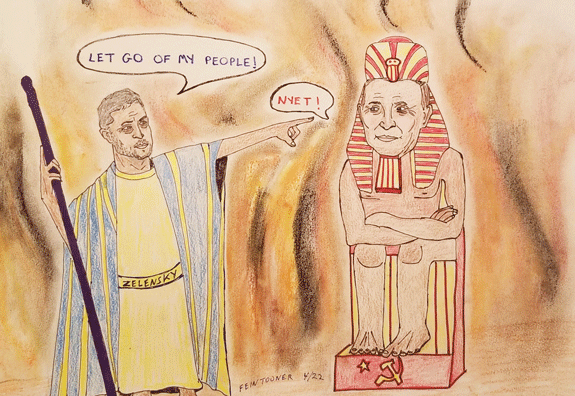 LET GO OF MY PEOPLE!
NYET!
ZELENSKY
FEINTOONER 4/22